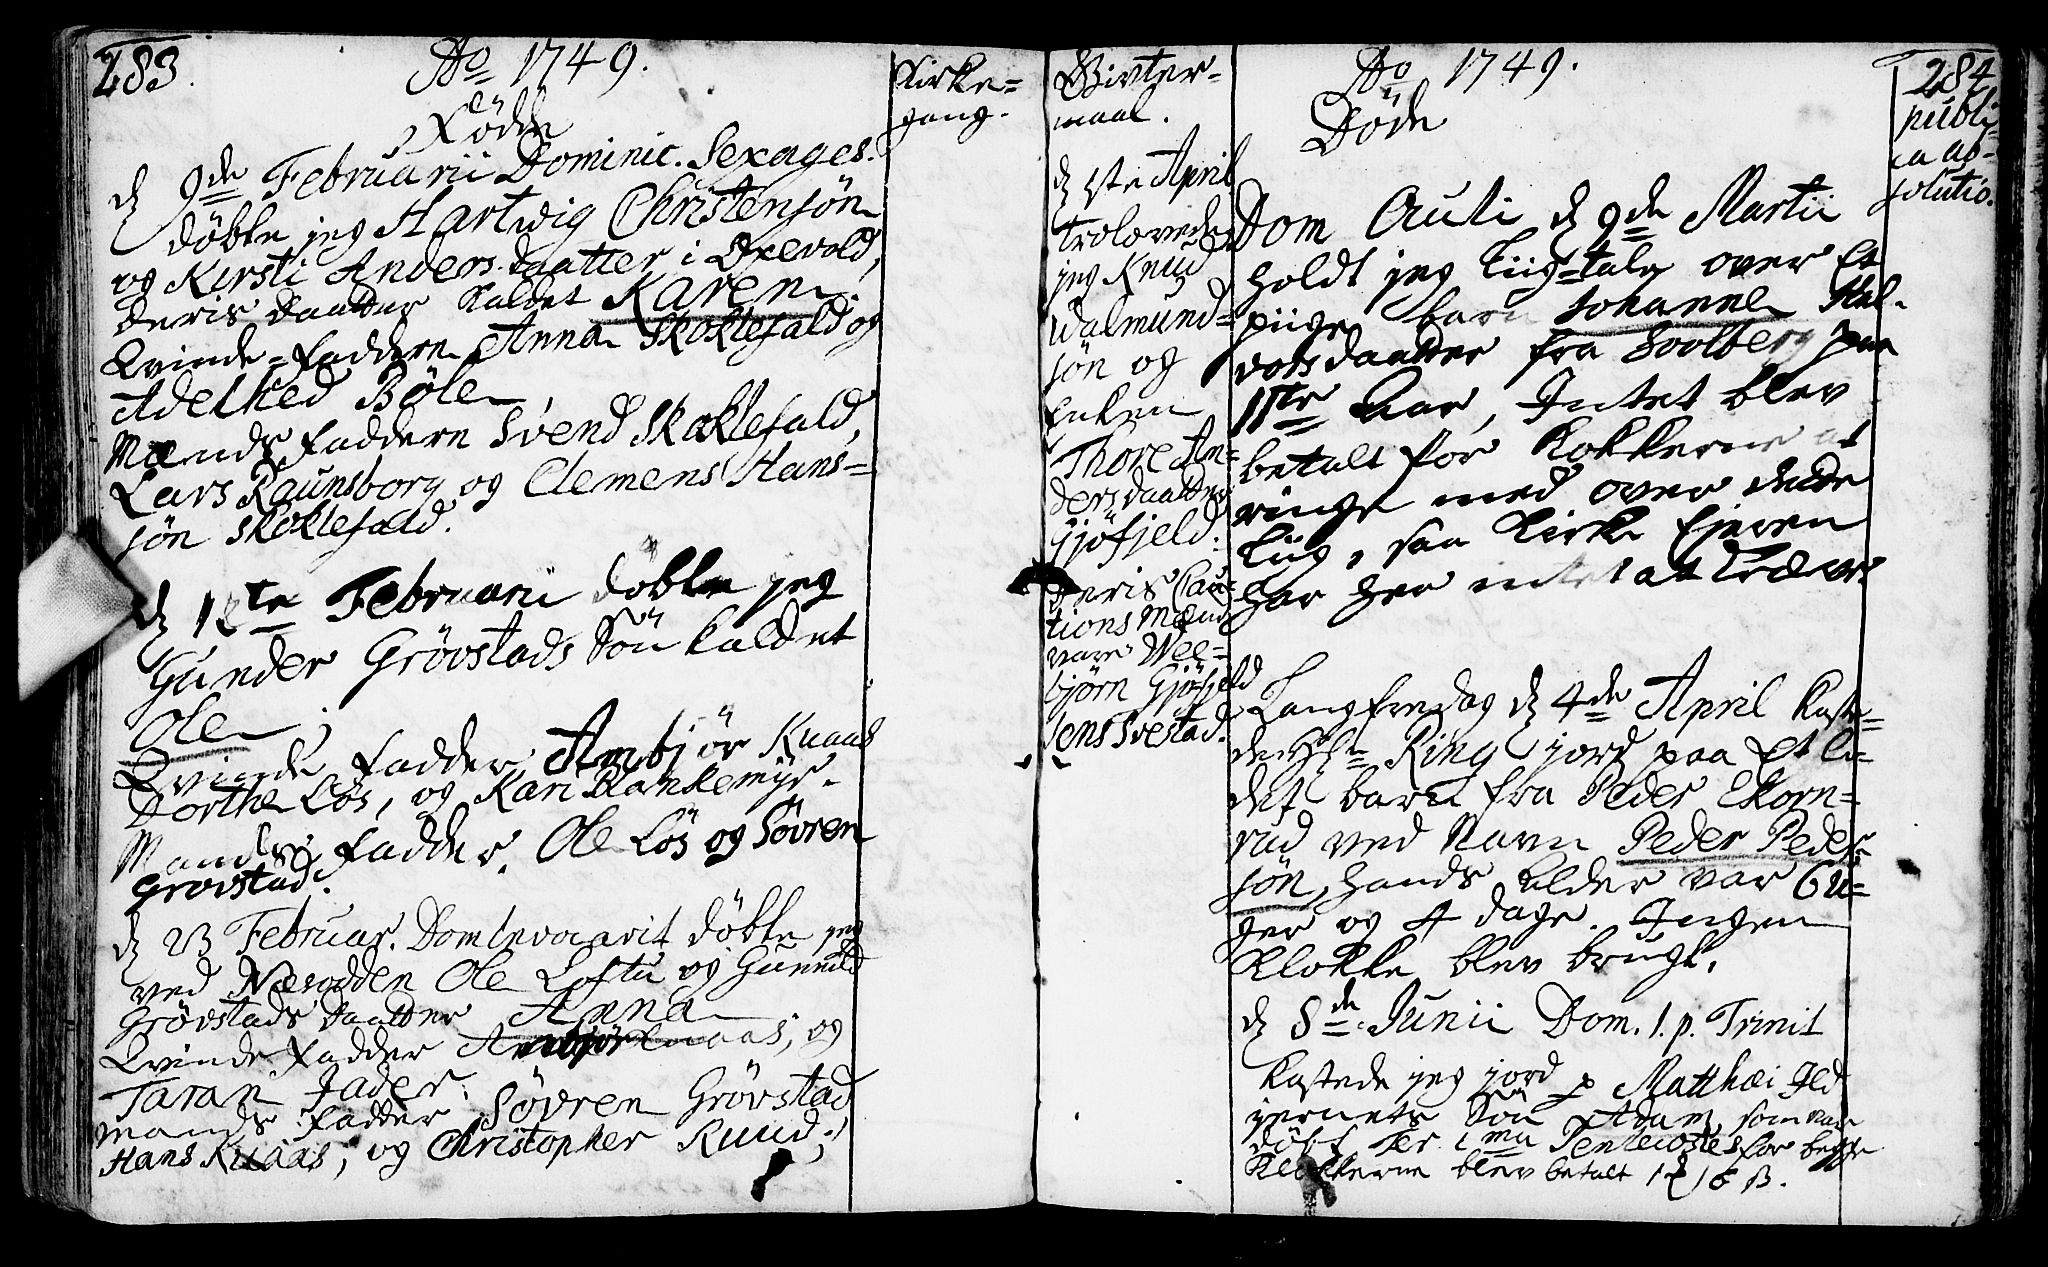 283.
Ao 1749.
Fødde
d 9de Februarii Dominic. Sexages.
døbte jeg Hartwig Christensøn
og Kirsti Anders daatter i Oxevold,
deris daatter kaldet Karen.
Qvinde-faddere Anna Skoklefald og
Adelhed Bøle
Mends faddere Svend Skoklefald,
Lars Raunsborg og Clemens Hans-
søn Skoklefald.
Februarii døbte jeg
Gunder Grøvstads Søn kaldet
Ole
Qvinde fadder Anbjør Knaas
Dorthe Løs, og Kari Blankemyr.
Mands fadder. Ole Løs og Søvren
Grøvstad.
d 23 Februar. Dom Invocavit døbte jeg
ved Næsodden Ole Loftu og Gunnild
Grøvstads daatter Anna
Qvinde fadder Anbjør Knaas, og
Taran Jader.
mands fadder Søvren Grøvstad
Hans Knaas, og Christopher Ruud.
Kirke=
gang.
Givter=
maal.
d 1ste April
trolovede
jeg Knud
Walmund=
søn og
Enken
Thore An=
dersdaatter
Gjøfjeld.
deris Cau=
tions Mænd
vare Wee=
bjørn Gjøfjeld
Jens Svestad.
Ao 1749.
Døde
Dom Oculi d 9de Martii
holdt jeg Liig-tale over Et
piige barn Johanne Hal-
vorsdaatter fra Soolberg paa
11te Aar, Intet blev
betalt for Klokkerne at
ringe med over dette
Liig, saa Kirke Ejeren
har her intet at Kræve.
Langfredag d 4de April kaste=
de Hr Ring jord paa Et li=
det barn fra Peder Ekorn=
rud ved Navn Peder Peder
søn, hands alder var 6 u=
ger og 4 dage. Ingen
Klokke blev brugt.
d 8de Junii Dom. 1. p. Trinit
kastede jeg jord p Matthæi Ild
jernets Søn Adam som var
døbt Fer 1ma Pentecostes for begge
Klokkerne blev betalt 1 16 ß.
284
publi=
ca ab=
solutio.